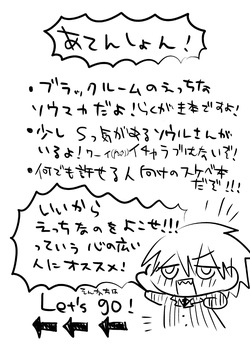 あてんしょん!
・ブラックルームのえっちな
ソウマカだよ!らくがき本ですよ!
・少しSっ気があるソウルさんが
いるよ!ワーイ(^o^)イチャラブはないぞ!
・何でも許せる人向けのスケベ本
だぞ!!!
いいから
えっちなのをよこせ!!!
っていう心の広い
人にオススメ!
そんな方は
Let's go!